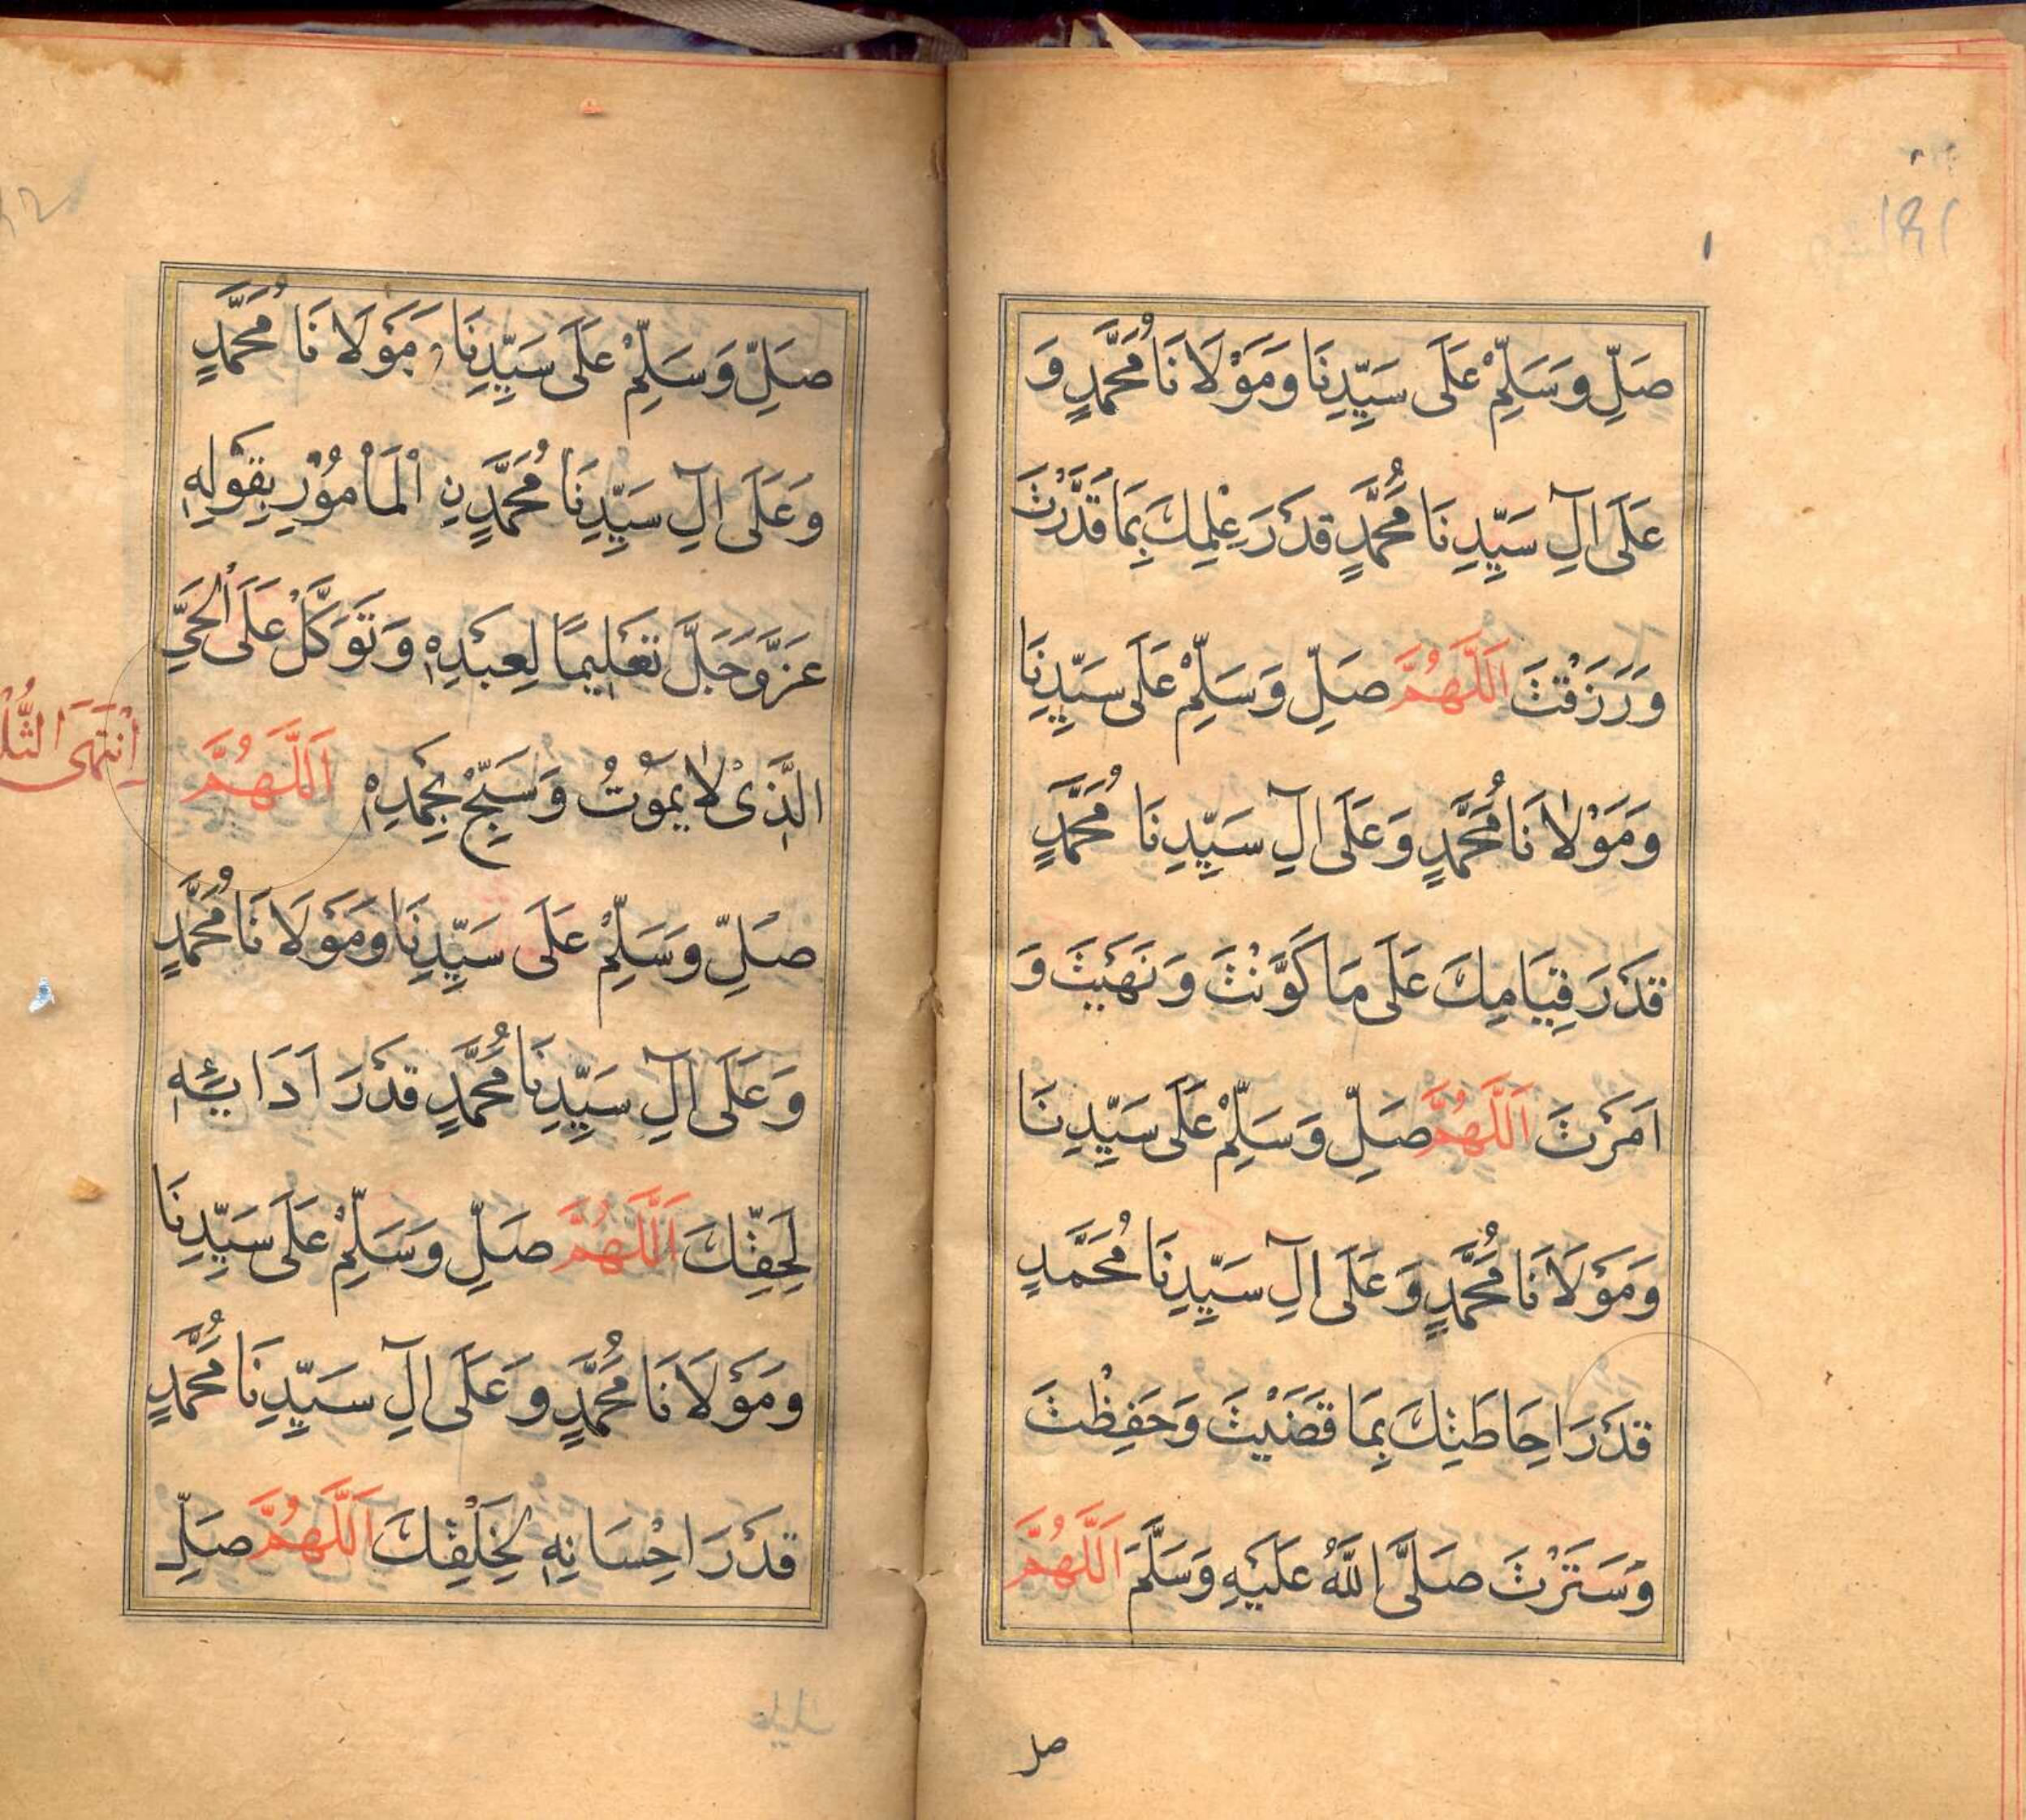 صَلِّ وَسَلِّمْ عَلَى سَيِّدِنَا وَمَوْلَانَا مُحَمَّدٍ وَ
عَلَى اٰلِ سَيِّدِنَا مُحَمَّدٍ قَدْرَ عِلْمِكَ بِمَا قَدَّرْتَ
وَرَزَقْتَ اَللَّهُمَّ صَلِّ وَسَلِّمْ عَلَى سَيِّدِنَا
وَمَوْلَانَا مُحَمَّدٍ وَعَلَى اٰلِ سَيِّدِنَا مُحَمَّدٍ
قَدْرَ قِيَامِكَ عَلَى مَا كَوَّنْتَ وَنَهَيْتَ وَ
اَمَرْتَ اَللَّهُمَّ صَلِّ وَسَلِّمْ عَلَى سَيِّدِنَا
وَمَوْلَانَا مُحَمَّدٍ وَعَلَى اٰلِ سَيِّدِنَا مُحَمَّدٍ
قَدْرَ اِحَاطَتِكَ بِمَا قَضَيْتَ وَحَفِظْتَ
وَسَتَرْتَ صَلَّى اللّٰهُ عَلَيْهِ وَسَلَّمَ اَللَّهُمَّ
صل
صَلِّ وَسَلِّمْ عَلَى سَيِّدِنَا وَمَوْلَانَا مُحَمَّدٍ
وَعَلَى اٰلِ سَيِّدِنَا مُحَمَّدٍ نِ الْمَأْمُوْرِ بِقَوْلِهٖ
عَزَّ وَجَلَّ تَعْلِيمًا لِعَبْدِهٖ وَتَوَكَّلْ عَلَى الْحَيِّ
الَّذِىْ لَا يَمُوْتُ وَسَبِّحْ بِحَمْدِهٖ اَللَّهُمَّ
اِنْتَهَى
صَلِّ وَسَلِّمْ عَلَى سَيِّدِنَا وَمَوْلَانَا مُحَمَّدٍ
وَعَلَى اٰلِ سَيِّدِنَا مُحَمَّدٍ قَدْرَ اَدَائِهٖ
لِحَقِّكَ اَللَّهُمَّ صَلِّ وَسَلِّمْ عَلَى سَيِّدِنَا
وَمَوْلَانَا مُحَمَّدٍ وَعَلَى اٰلِ سَيِّدِنَا مُحَمَّدٍ
قَدْرَ اِحْسَانِهٖ لِخَلْقِكَ اَللَّهُمَّ صَلِّ